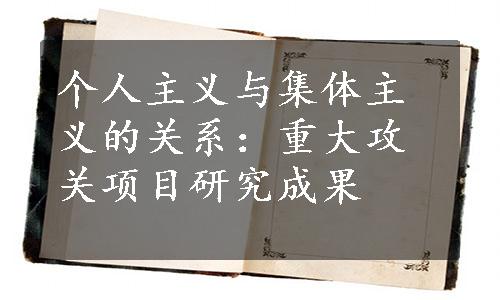 个人主义与集体主
义的关系：重大攻
关项目研究成果